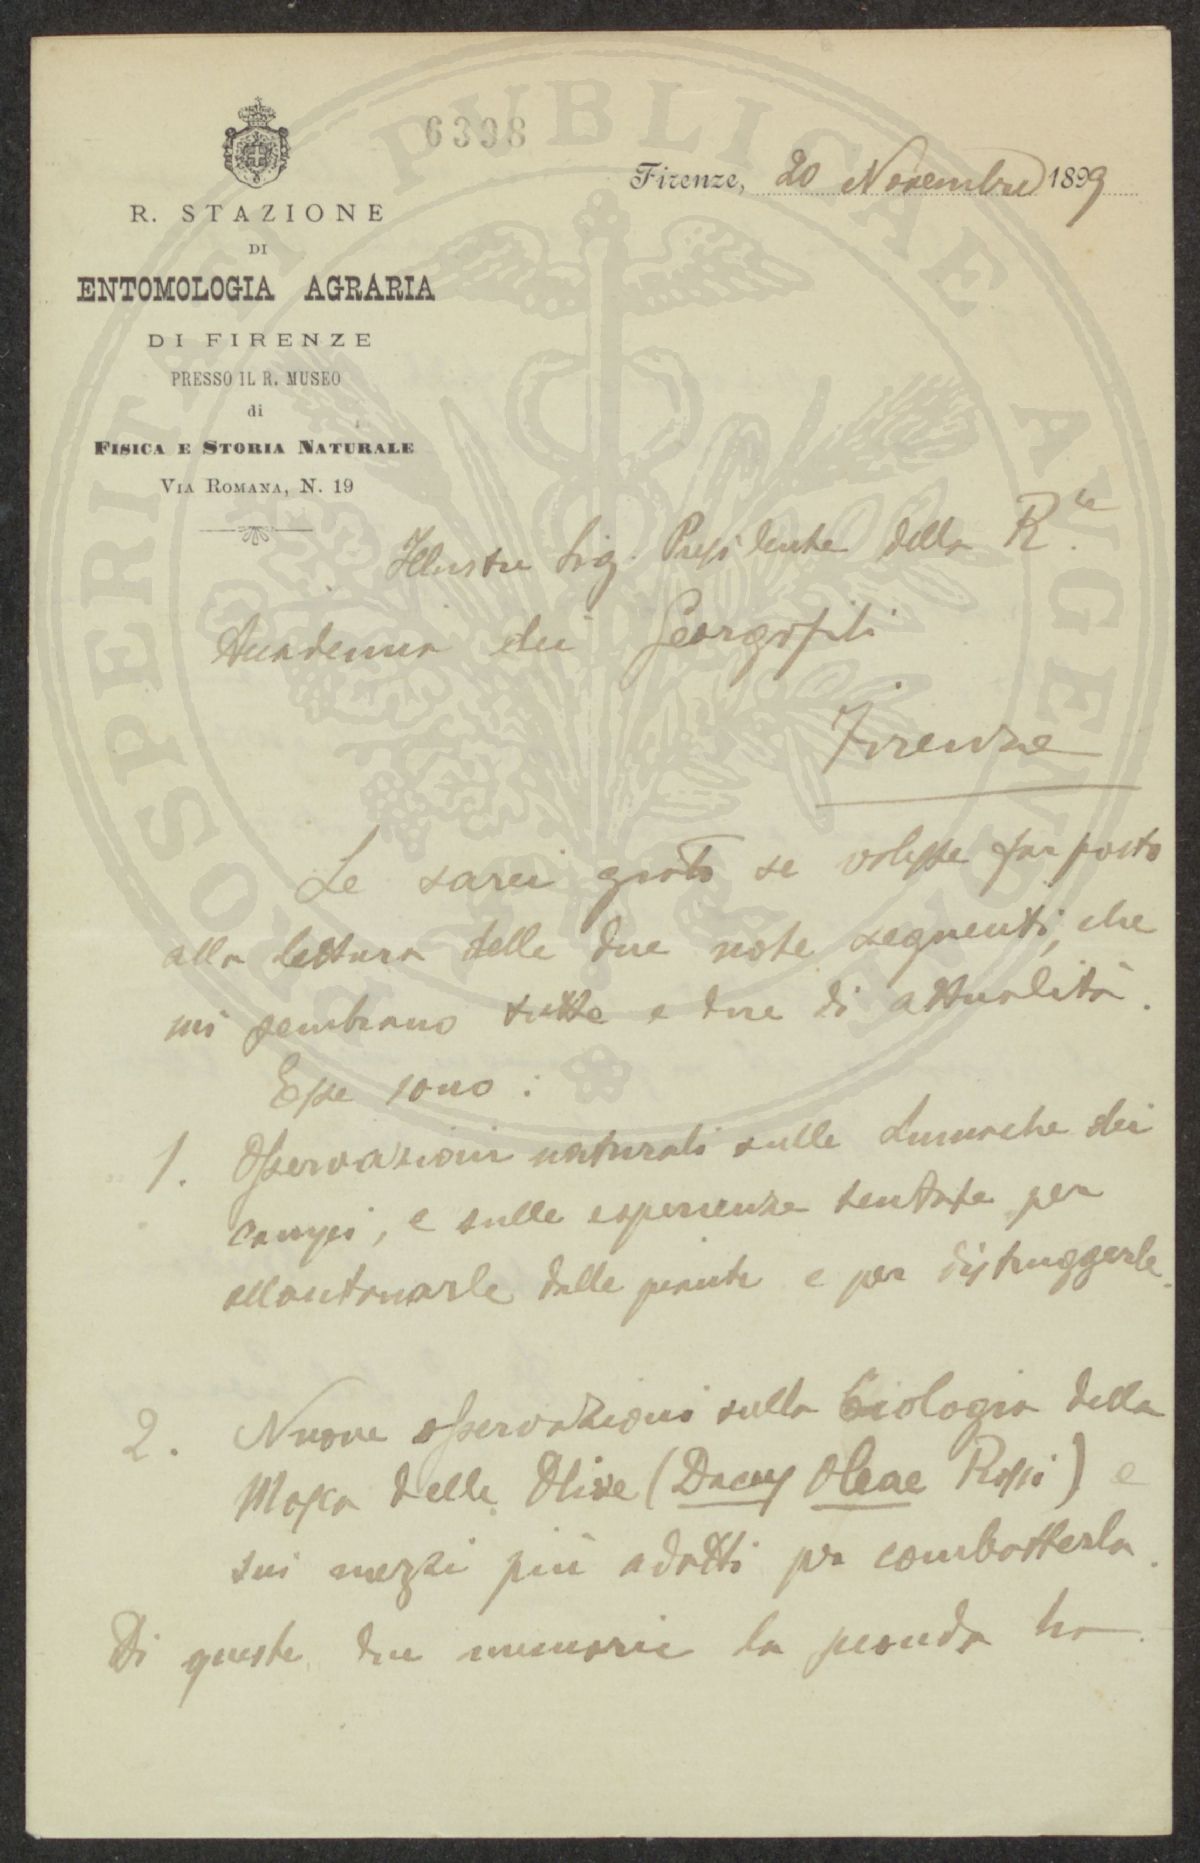 6398
Firenze, 20 Novembre 1899
R. STAZIONE
DI
ENTOMOLOGIA AGRARIA
DI FIRENZE
PRESSO IL R. MUSEO
di
FISICA E STORIA NATURALE
VIA ROMANA, N. 19
Illustre Sig. Presidente della R.le
Accademia dei Georgofili
Firenze
Le sarei grato se volesse far posto
alla lettura delle due note seguenti, che
mi sembrano tutte e due di attualità.
Esse sono:
1. Osservazioni naturali sulle Lumache dei
campi, e sulle esperienze tentate per
allontanarle dalle piante e per distruggerle.
2. Nuove osservazioni sulla biologia della
Mosca delle Olive (Dacus Oleae Rossi) e
sui mezzi più adatti per combatterla.
Di queste due memorie la seconda ha
PROSPERITATI PUBLICAE AVGENDAE